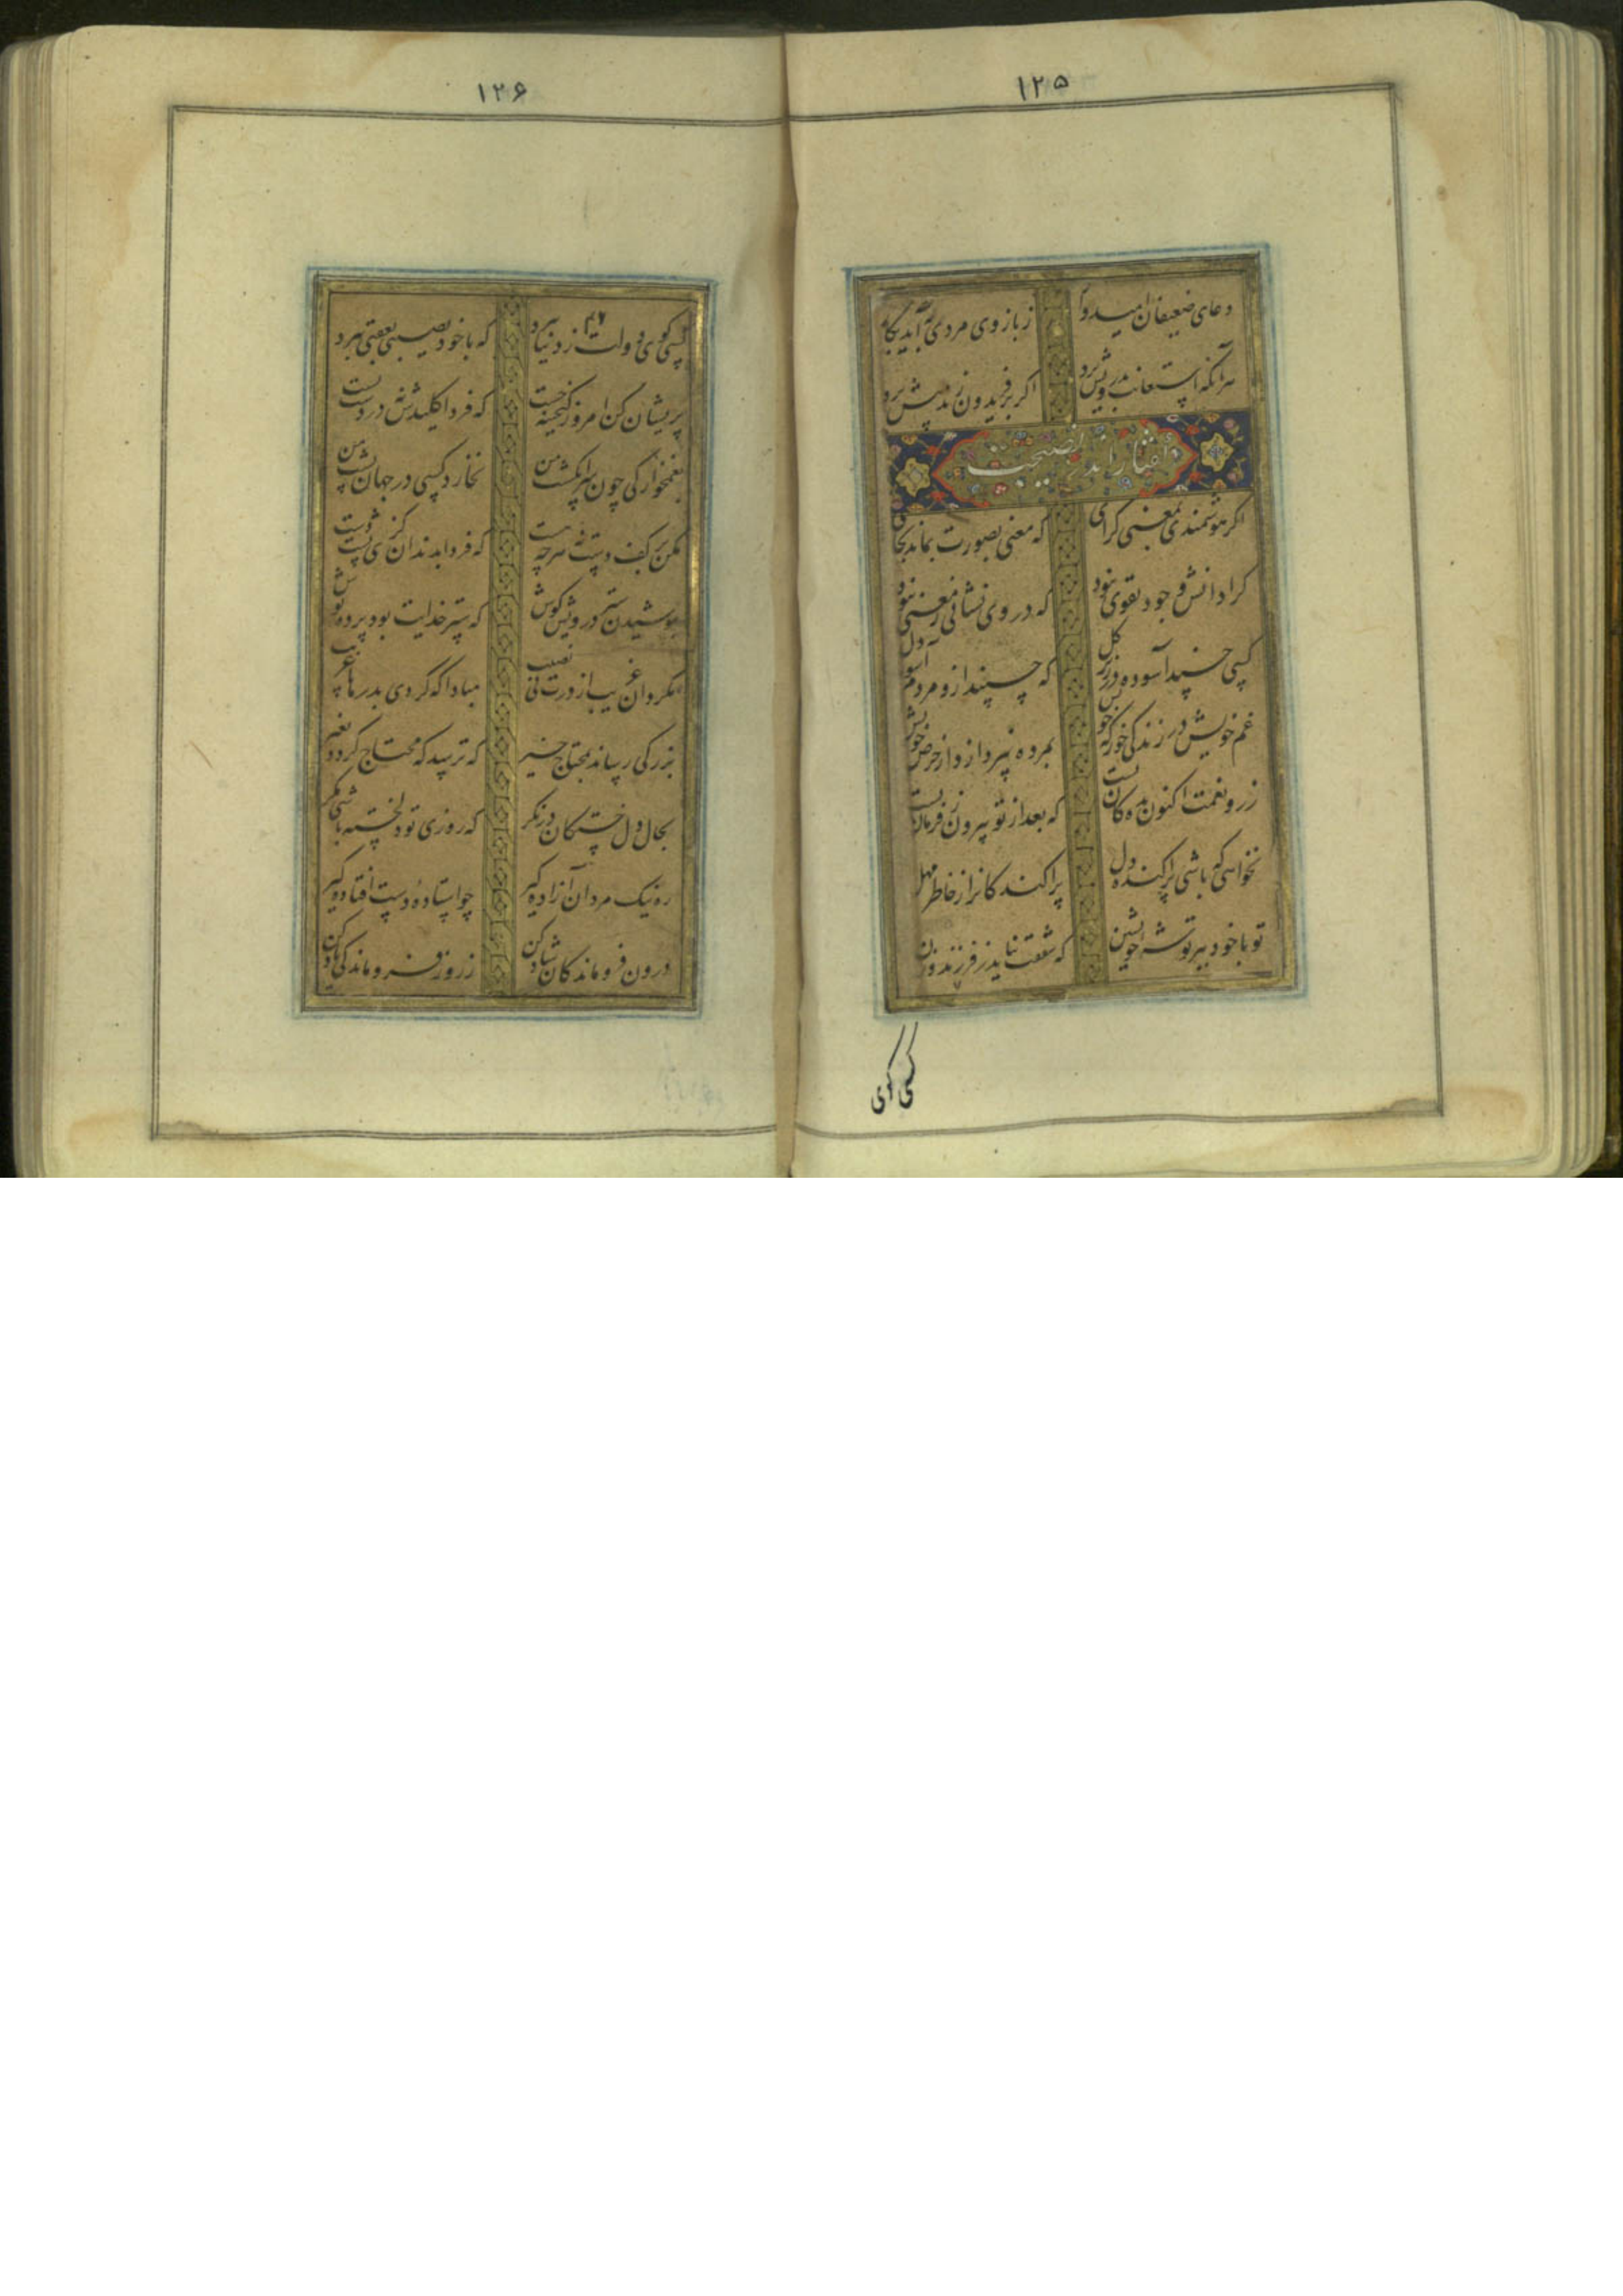 ۱۲۵
دعای ضعیفان امیدوار ز بازوی مردی به آید بکار
هرآنکه استعانت بدرویش برد اگر بر فریدون زد پیش برد
نصیحت
اگر هوشمندی بمعنی گرای که معنی بصورت بماند بجای
کرا دانش وجود و تقوی نبود که در وی نشانی ز معنی نبود
کسی خسپد آسوده در زیر گل که خسپند ازو مردم آسوده دل
غم خویش در زندگی خور که خویش بمرده نپردازد از حرص خویش
زر و نعمت اکنون بده کان تست که بعد از تو بیرون ز فرمان تست
نخواهی که باشی پراکنده دل پراکندگانرا ز خاطر مهل
تو با خود ببر توشه خویشتن که شفقت نیاید ز فرزند و زن
کسی گوی
۱۲۶
۴۶
کسی گوی دولت ز دنیا ببرد که با خود نصیبی بعقبی ببرد
پریشان کن امروز گنجینه چست که فردا کلیدش نه در دست تست
بغمخوارگی چون سرانگشت من نخارد کسی در جهان پشت من
مکن بر کف دست نه هرچه هست که فردا بدندان گزی پشت دست
بپوشیدن ستر درویش کوش که ستر خدایت بود پرده پوش
مگردان غریب از درت بی نصیب مبادا که گردی بدرها غریب
بزرگی رساند بمحتاج خیر که ترسد که محتاج گردد بغیر
بحال دل خستگان در نگر که روزی تو دلخسته باشی مگر
ره نیک مردان آزاده گیر چو استاده دست افتاده گیر
درون فروماندگان شاد کن ز روز فروماندگی یاد کن